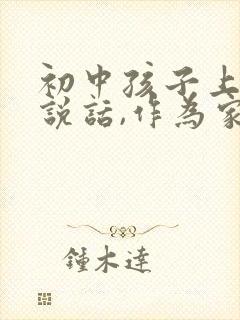 初中孩子上
説話,作為家
鍾木達